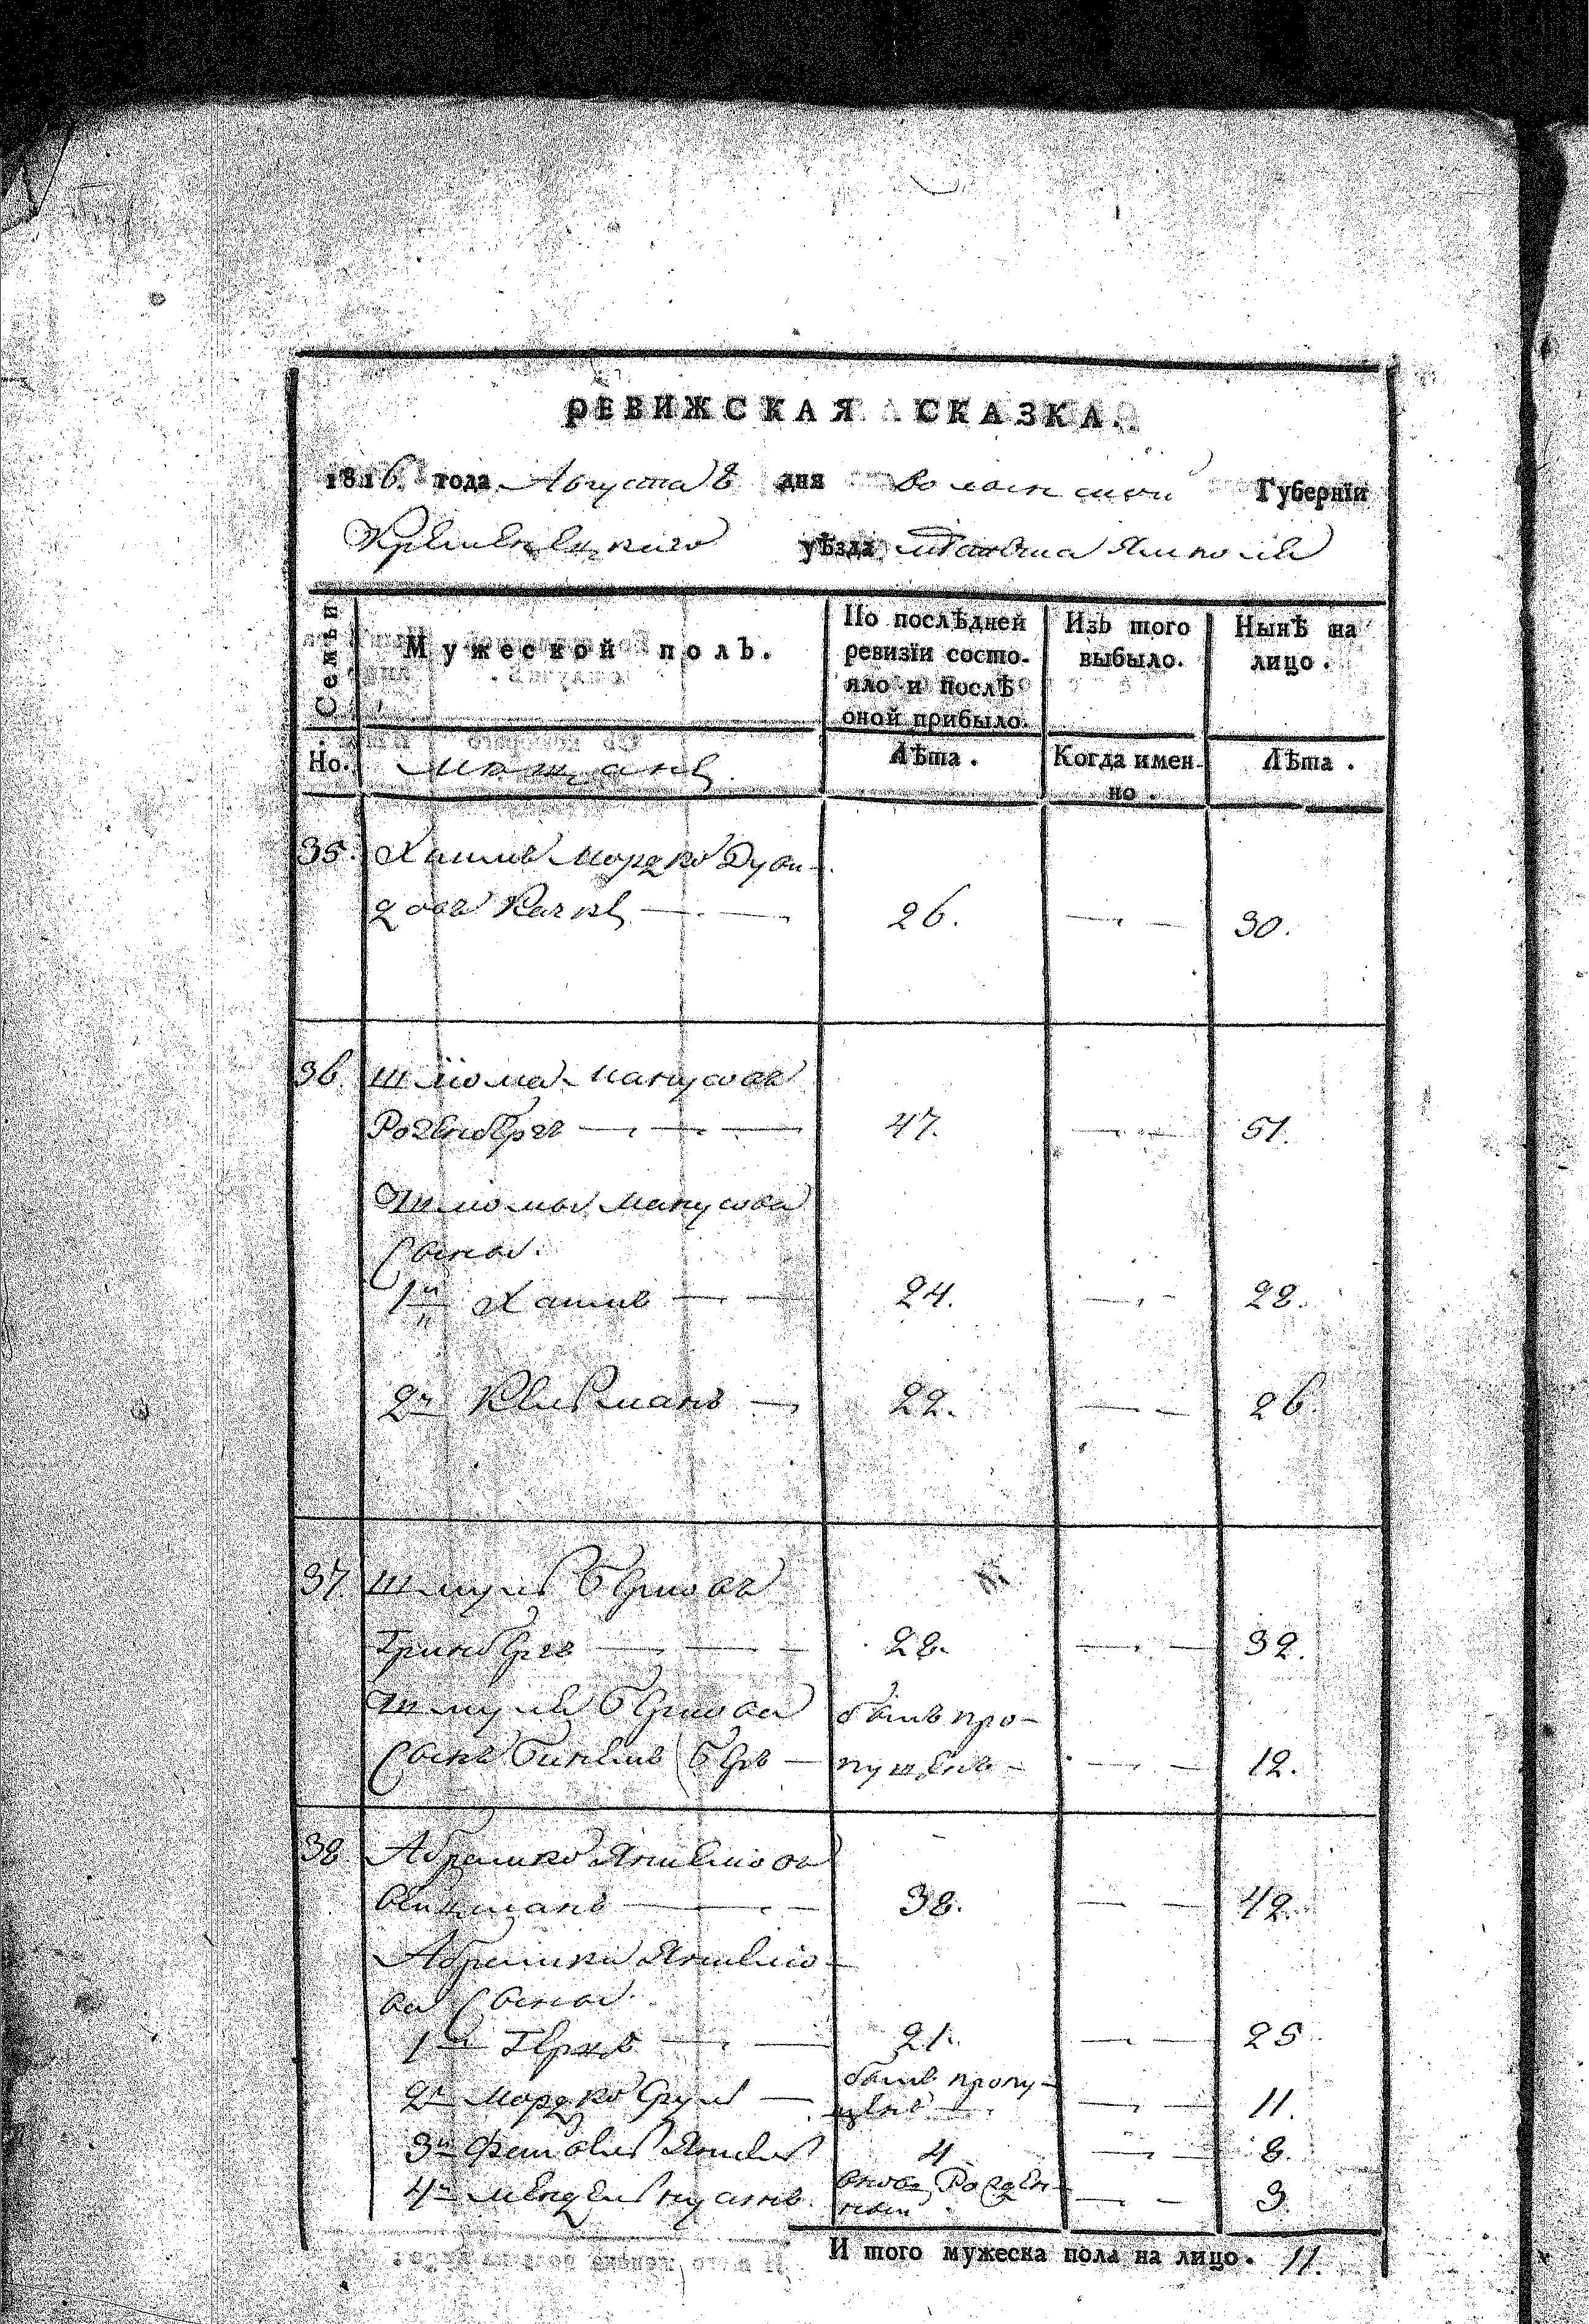 РЕВИЖСКАЯ СКАЗКА.
1816. года Августа 8 дня Волынской Губернїи
Кременецкаго уѣзда Ямполе
Семьи
Мужеской полъ.
По послѣдней ревизїи состояло и послѣ оной прибыло.
Изъ того выбыло.
Нынѣ на лицо.
Но.
Мещане
Лѣта.
Когда именно.
Лѣта.
35. Хаимъ Мордко Дуви-
26. 30.
36. Шлиома Манусовъ
Розенбергъ 47. 51.
Шлиомы Манусова
Сыны.
1й Хаимъ 24. 28.
2й 22. 26.
37 Шмуль Берковъ
Гринбергъ 28. 32.
Шмуля Беркова былъ про-
Сынъ Беръ пущенъ 12.
38 Абрамко
38. 42.
Абрамки
ва Сыны
1й Герш 21. 25
2й Мордко Сруль былъ пропу-
щенъ 11.
3й Файвель 4 8.
4й Мендель вновь Рожден-
ный 3
И того мужеска пола на лицо. 11.